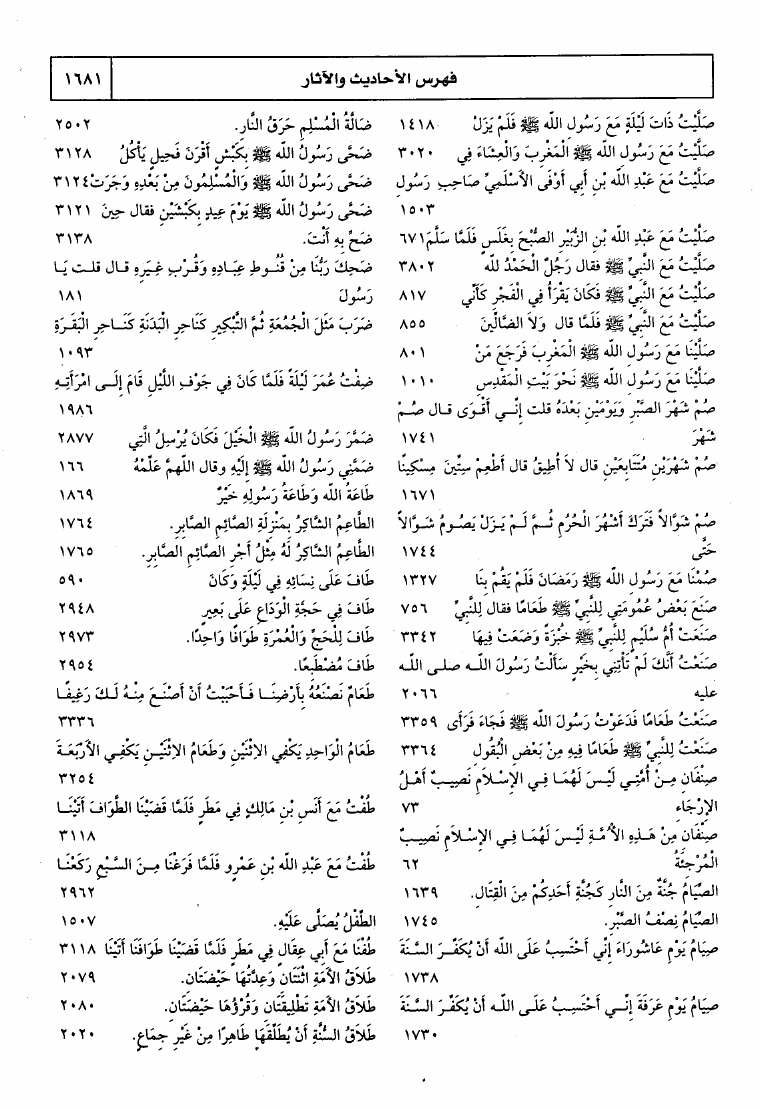 فهرس الأحاديث والآثار
١٦٨١
صَلَّيْتُ ذَاتَ لَيْلَةٍ مَعَ رَسُولِ الله ﷺ فَلَمْ يَزَلْ ١٤١٨
صَلَّيْتُ مَعَ رَسُولِ الله ﷺ الْمَغْرِبَ وَالْعِشَاءَ فِي ٣٠٢٠
صَلَّيْتُ مَعَ عَبْدِ الله بْنِ أَبِي أَوْفَى الأَسْلَمِيِّ صَاحِبِ رَسُولِ
١٥٠٣
صَلَّيْتُ مَعَ عَبْدِ الله بْنِ الزُّبَيْرِ الصُّبْحَ بِغَلَسٍ فَلَمَّا سَلَّمَ ٦٧١
صَلَّيْتُ مَعَ النَّبِيِّ ﷺ فقال رَجُلٌ الْحَمْدُ لله ٣٨٠٢
صَلَّيْتُ مَعَ النَّبِيِّ ﷺ فَكَانَ يَقْرَأُ فِي الْفَجْرِ كَأَنِّي ٨١٧
صَلَّيْتُ مَعَ النَّبِيِّ ﷺ فَلَمَّا قال وَلاَ الضَّالِّينَ ٨٥٥
صَلَّيْنَا مَعَ رَسُولِ الله ﷺ الْمَغْرِبَ فَرَجَعَ مَنْ ٨٠١
صَلَّيْنَا مَعَ رَسُولِ الله ﷺ نَحْوَ بَيْتِ الْمَقْدِسِ ١٠١٠
صُمْ شَهْرَ الصَّبْرِ وَيَوْمَيْنِ بَعْدَهُ قلت إِنِّي أَقْوَى قال صُمْ
شَهْرَ ١٧٤١
صُمْ شَهْرَيْنِ مُتَتَابِعَيْنِ قال لاَ أُطِيقُ قال أَطْعِمْ سِتِّينَ مِسْكِينًا
١٦٧١
صُمْ شَوَّالاً فَتَرَكَ أَشْهُرَ الْحُرُمِ ثُمَّ لَمْ يَزَلْ يَصُومُ شَوَّالاً
حَتَّى ١٧٤٤
صُمْنَا مَعَ رَسُولِ الله ﷺ رَمَضَانَ فَلَمْ يَقُمْ بِنَا ١٣٢٧
صَنَعَ بَعْضُ عُمُومَتِي لِلنَّبِيِّ ﷺ طَعَامًا فقال لِلنَّبِيِّ ٧٥٦
صَنَعَتْ أُمُّ سُلَيْمٍ لِلنَّبِيِّ ﷺ خُبْزَةً وَضَعَتْ فِيهَا ٣٣٤٢
صَنَعْتُ أَنَّكَ لَمْ تَأْتِنِي بِخَيْرٍ سَأَلْتُ رَسُولَ الله صلى الله
عليه ٢٠٦٦
صَنَعْتُ طَعَامًا فَدَعَوْتُ رَسُولَ الله ﷺ فَجَاءَ فَرَأَى ٣٣٥٩
صَنَعْتُ لِلنَّبِيِّ ﷺ طَعَامًا فِيهِ مِنْ بَعْضِ الْبُقُولِ ٣٣٦٤
صِنْفَانِ مِنْ أُمَّتِي لَيْسَ لَهُمَا فِي الإِسْلاَمِ نَصِيبٌ أَهْلُ
الإِرْجَاءِ ٧٣
صِنْفَانِ مِنْ هَذِهِ الأُمَّةِ لَيْسَ لَهُمَا فِي الإِسْلاَمِ نَصِيبٌ
الْمُرْجِئَةُ ٦٢
الصِّيَامُ جُنَّةٌ مِنَ النَّارِ كَجُنَّةِ أَحَدِكُمْ مِنَ الْقِتَالِ. ١٦٣٩
الصِّيَامُ نِصْفُ الصَّبْرِ. ١٧٤٥
صِيَامُ يَوْمِ عَاشُورَاءَ إِنِّي أَحْتَسِبُ عَلَى الله أَنْ يُكَفِّرَ السَّنَةَ
١٧٣٨
صِيَامُ يَوْمِ عَرَفَةَ إِنِّي أَحْتَسِبُ عَلَى الله أَنْ يُكَفِّرَ السَّنَةَ
١٧٣٠
ضَالَّةُ الْمُسْلِمِ حَرَقُ النَّارِ. ٢٥٠٢
ضَحَّى رَسُولُ الله ﷺ بِكَبْشٍ أَقْرَنَ فَحِيلٍ يَأْكُلُ ٣١٢٨
ضَحَّى رَسُولُ الله ﷺ وَالْمُسْلِمُونَ مِنْ بَعْدِهِ وَجَرَتْ ٣١٢٤
ضَحَّى رَسُولُ الله ﷺ يَوْمَ عِيدٍ بِكَبْشَيْنِ فقال حِينَ ٣١٢١
ضَحِّ بِهِ أَنْتَ. ٣١٣٨
ضَحِكَ رَبُّنَا مِنْ قُنُوطِ عِبَادِهِ وَقُرْبِ غِيَرِهِ قال قلت يَا
رَسُولَ ١٨١
ضَرَبَ مَثَلَ الْجُمُعَةِ ثُمَّ التَّبْكِيرِ كَنَاحِرِ الْبَدَنَةِ كَنَاحِرِ الْبَقَرَةِ
١٠٩٣
ضِفْتُ عُمَرَ لَيْلَةً فَلَمَّا كَانَ فِي جَوْفِ اللَّيْلِ قَامَ إِلَى امْرَأَتِهِ
١٩٨٦
ضَمَّرَ رَسُولُ الله ﷺ الْخَيْلَ فَكَانَ يُرْسِلُ الَّتِي ٢٨٧٧
ضَمَّنِي رَسُولُ الله ﷺ إِلَيْهِ وقال اللهمَّ عَلِّمْهُ ١٦٦
طَاعَةُ الله وَطَاعَةُ رَسُولِهِ خَيْرٌ ١٨٦٩
الطَّاعِمُ الشَّاكِرُ بِمَنْزِلَةِ الصَّائِمِ الصَّابِرِ. ١٧٦٤
الطَّاعِمُ الشَّاكِرُ لَهُ مِثْلُ أَجْرِ الصَّائِمِ الصَّابِرِ. ١٧٦٥
طَافَ عَلَى نِسَائِهِ فِي لَيْلَةٍ وَكَانَ ٥٩٠
طَافَ فِي حَجَّةِ الْوَدَاعِ عَلَى بَعِيرٍ ٢٩٤٨
طَافَ لِلْحَجِّ وَالْعُمْرَةِ طَوَافًا وَاحِدًا. ٢٩٧٣
طَافَ مُضْطَبِعًا. ٢٩٥٤
طَعَامٌ نَصْنَعُهُ بِأَرْضِنَا فَأَحْبَبْتُ أَنْ أَصْنَعَ مِنْهُ لَكَ رَغِيفًا
٣٣٣٦
طَعَامُ الْوَاحِدِ يَكْفِي الاِثْنَيْنِ وَطَعَامُ الاِثْنَيْنِ يَكْفِي الأَرْبَعَةَ
٣٢٥٤
طُفْتُ مَعَ أَنَسِ بْنِ مَالِكٍ فِي مَطَرٍ فَلَمَّا قَضَيْنَا الطَّوَافَ أَتَيْنَا
٣١١٨
طُفْتُ مَعَ عَبْدِ الله بْنِ عَمْرٍو فَلَمَّا فَرَغْنَا مِنَ السَّبْعِ رَكَعْنَا
٢٩٦٢
الطِّفْلُ يُصَلَّى عَلَيْهِ. ١٥٠٧
طُفْنَا مَعَ أَبِي عِقَالٍ فِي مَطَرٍ فَلَمَّا قَضَيْنَا طَوَافَنَا أَتَيْنَا ٣١١٨
طَلاَقُ الأَمَةِ اثْنَتَانِ وَعِدَّتُهَا حَيْضَتَانِ. ٢٠٧٩
طَلاَقُ الأَمَةِ تَطْلِيقَتَانِ وَقُرْؤُهَا حَيْضَتَانِ. ٢٠٨٠
طَلاَقُ السُّنَّةِ أَنْ يُطَلِّقَهَا طَاهِرًا مِنْ غَيْرِ جِمَاعٍ. ٢٠٢٠